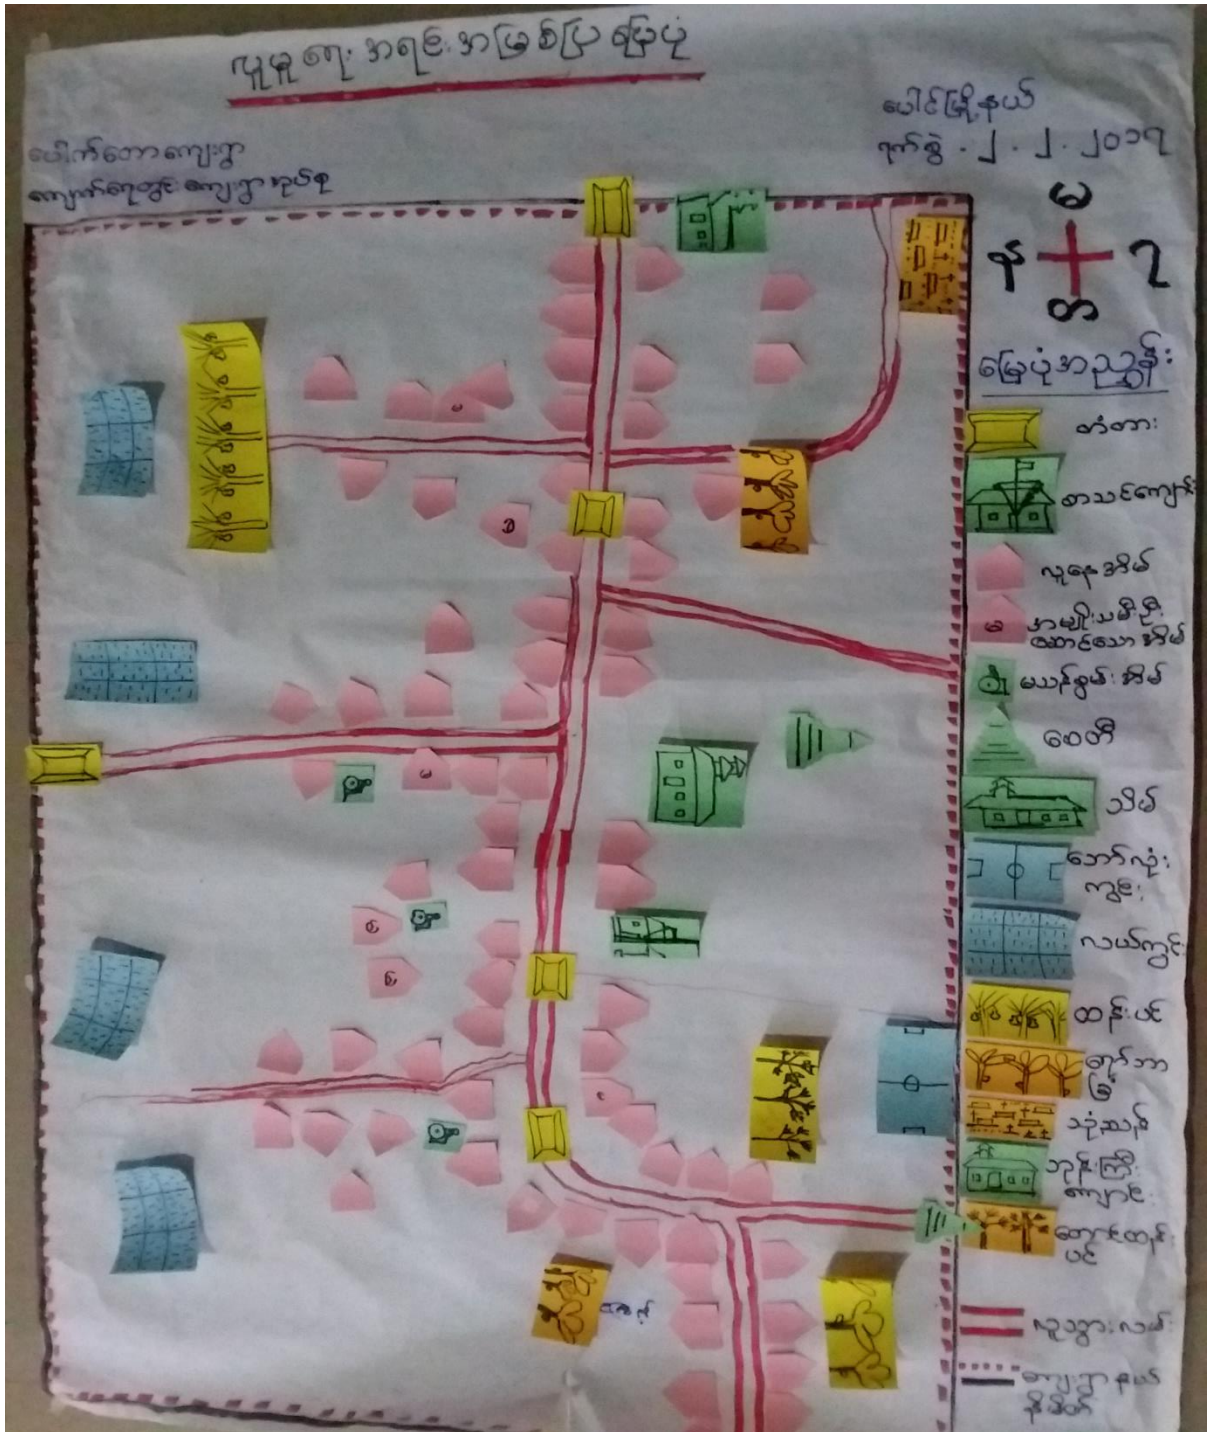 လူမှုရေး အရင်းအမြစ်ပြ မြေပုံ
ပေါင်မြို့နယ်
ရက်စွဲ . ၂ . ၂ . ၂၀၁၇
ပေါက်တောကျေးရွာ
ကျောက်ရေတွင်းကျေးရွာအုပ်စု
မ
န
ဠ
တ
မြေပုံအညွှန်း
တံတား
စာသင်ကျောင်း
လူနေအိမ်
အမျိုးသမီးဦး
ဆောင်သောအိမ်
မသန်စွမ်းအိမ်
စေတီ
သိမ်
ဘောလုံး
ကွင်း
လယ်ကွင်း
ထန်းပင်
ရော်ဘာ
ခြံ
သုံးဿန်
ဘုန်းကြီး
ကျောင်း
တောင်ထန်း
ပင်
လူသွားလမ်း
ကျေးရွာနယ်
နိမိတ်